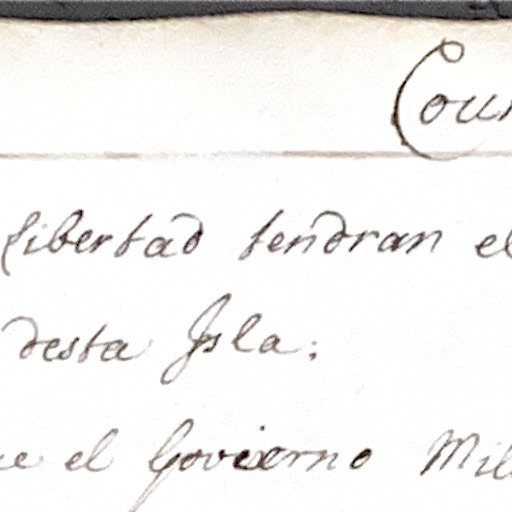 Cour
libertad tendran el
desta Isla;
el Govierno Mil